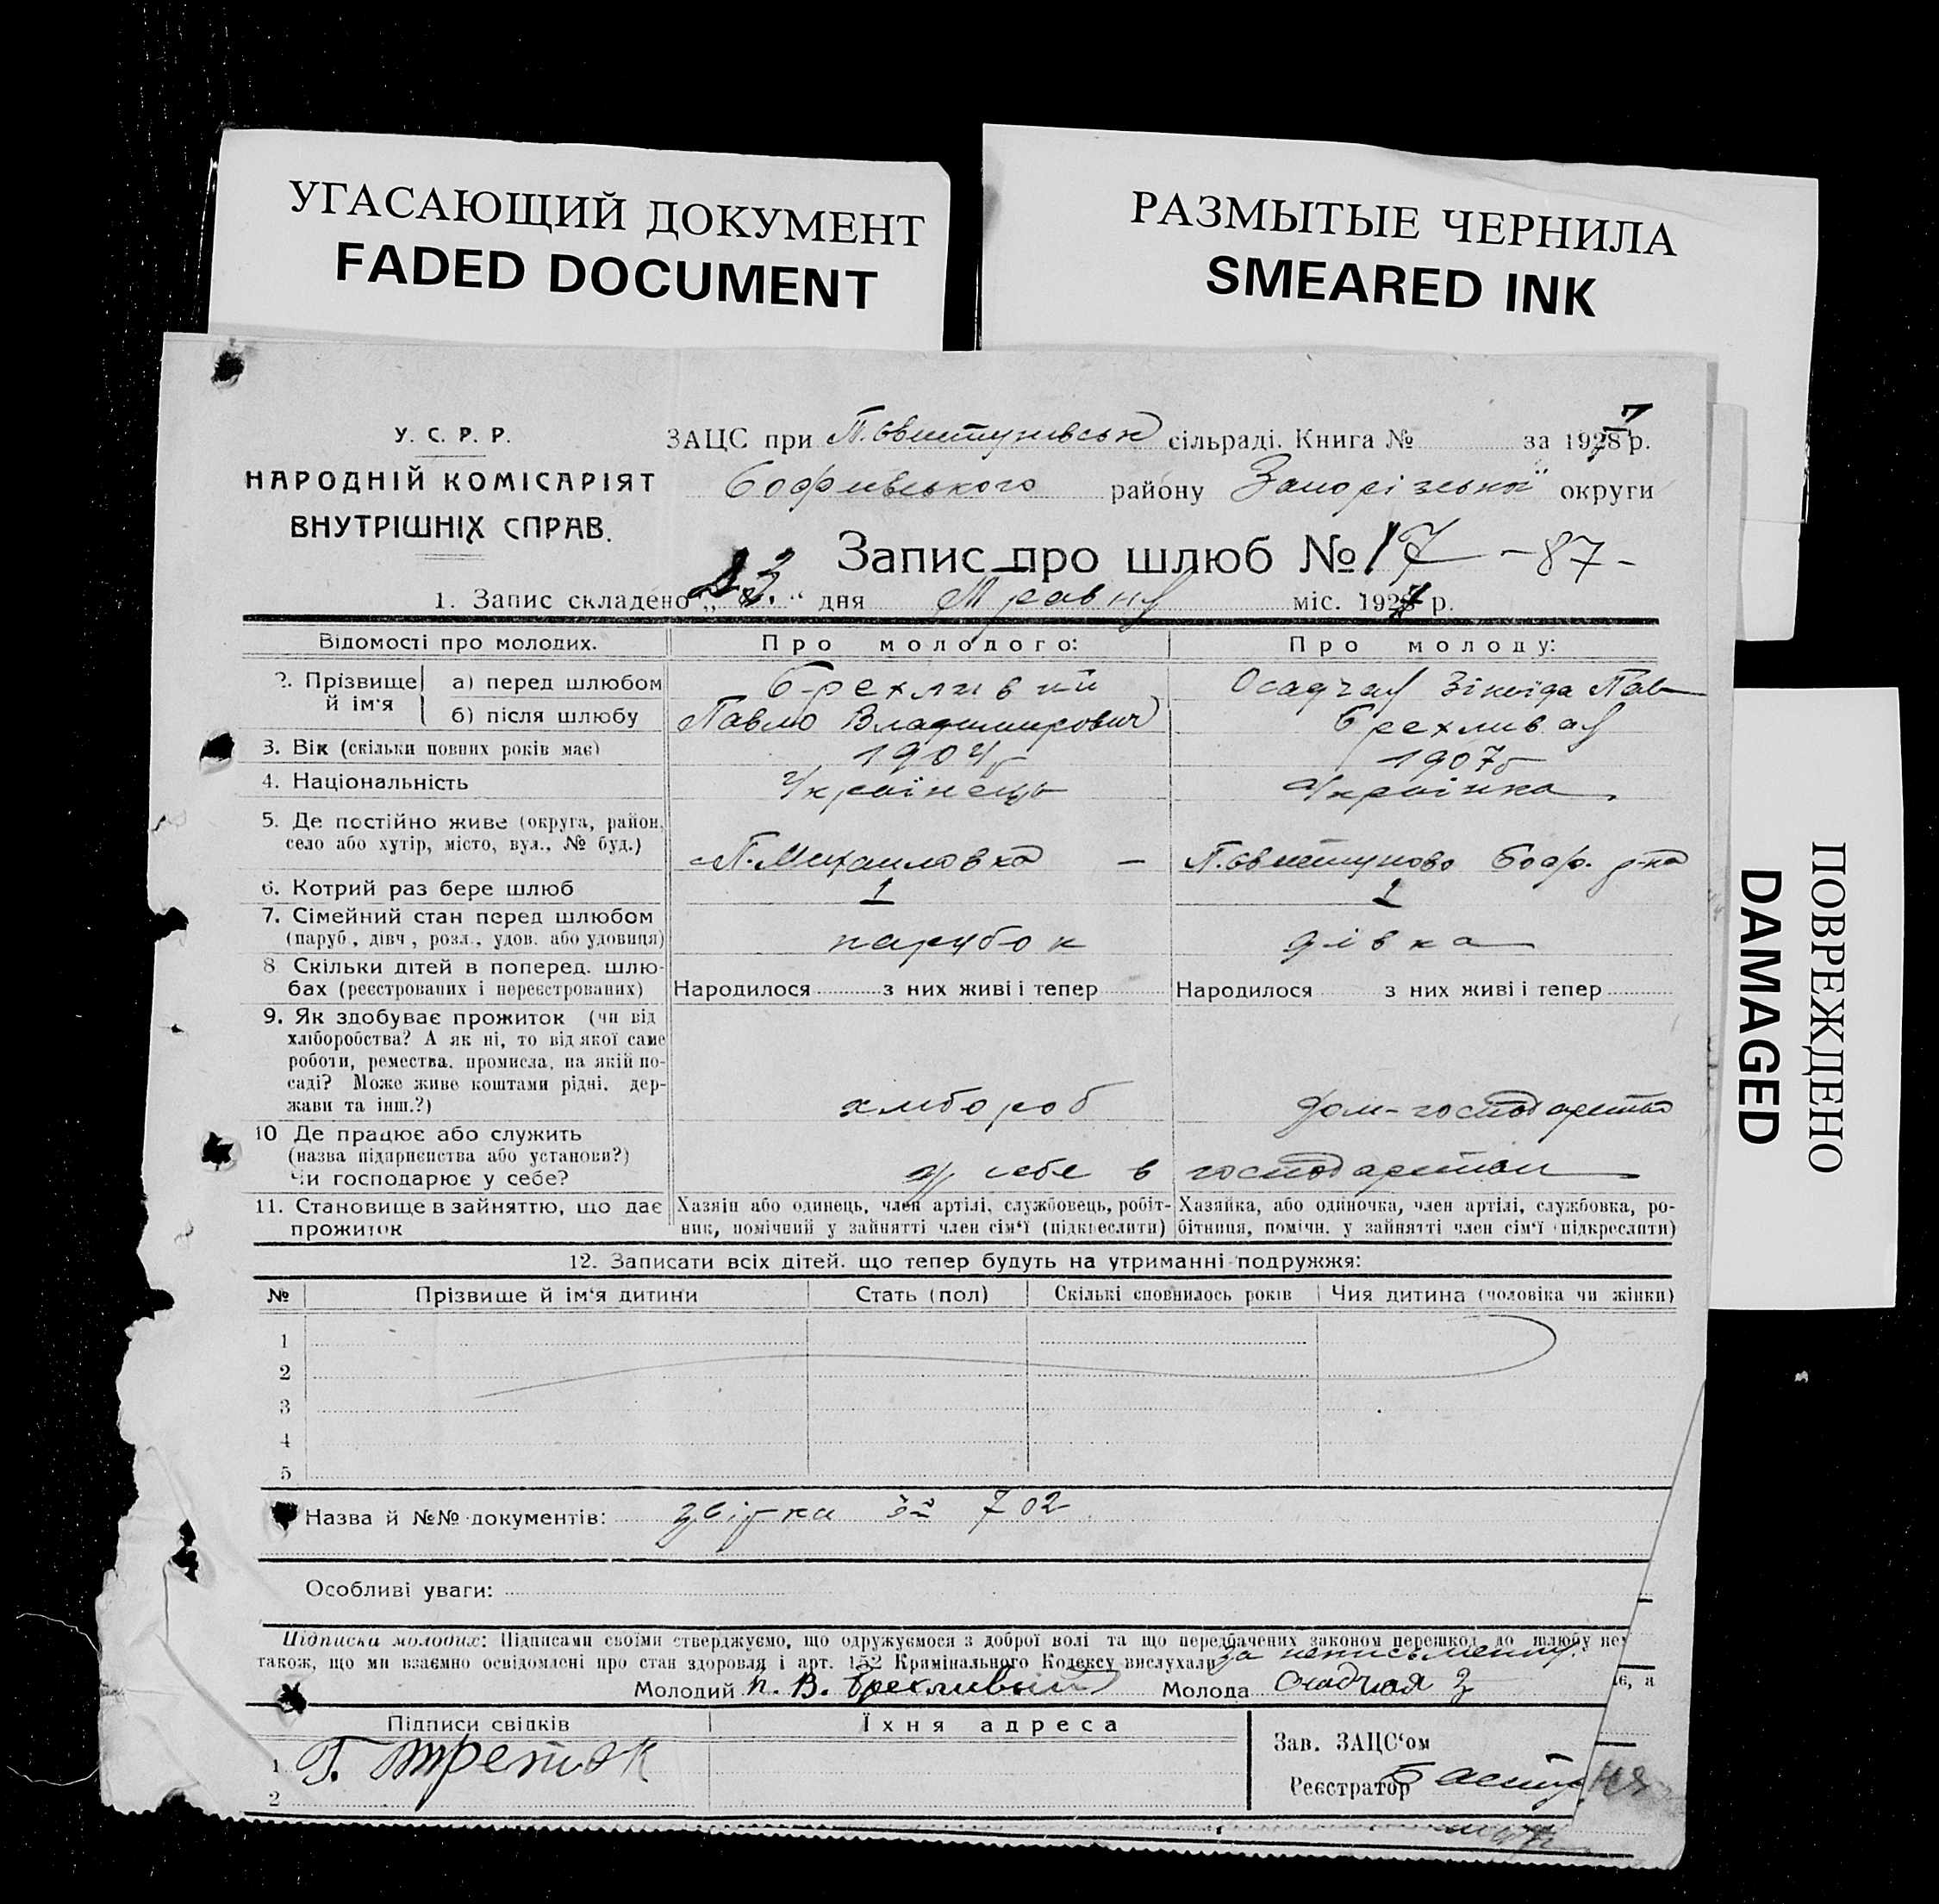 УГАСАЮЩИЙ ДОКУМЕНТ
FADED DOCUMENT
РАЗМЫТЫЕ ЧЕРНИЛА
SMEARED INK
ПОВРЕЖДЕНО
DAMAGED
У. С. Р. Р.
НАРОДНІЙ КОМІСАРІЯТ
ВНУТРІШНІХ СПРАВ.
ЗАЦС при П. Свистунівськ сільраді. Книга № за 1927 р.
Софиївського району Запорізької округи
Запис про шлюб № 17 - 87 -
1. Запис складено „ “ дня Травня міс. 1927 р.
Відомості про молодих. Про молодого: Про молоду:
2. Прізвище й ім'я а) перед шлюбом Брехливий Осадчая Зінаїда Пав
б) після шлюбу Павло Владимирович Брехливая
3. Вік (скільки повних років має) 1904 1907
4. Національність Українець Українка
5. Де постійно живе (округа, район,
село або хутір, місто, вул., № буд.) П. Михаиловка — П. Свистуново Соф. р-на
6. Котрий раз бере шлюб 1 1
7. Сімейний стан перед шлюбом
(паруб., дівч., розл., удов. або удовиця) парубок дівка
8 Скільки дітей в поперед. шлю-
бах (реєстрованих і нереєстрованих) Народилося з них живі і тепер Народилося з них живі і тепер
9. Як здобуває прожиток (чи від
хліборобства? А як ні, то від якої саме
роботи, ремества, промисла, на якій по-
саді? Може живе коштами рідні, дер-
жави та інш.?) хлібороб дом-господарство
10 Де працює або служить
(назва підприємства або установи?)
Чи господарює у себе? у себе в господарстві
11. Становище в зайняттю, що дає
прожиток
Хазяїн або одинець, член артілі, службовець, робіт-
ник, помічний у зайнятті член сім'ї (підкреслити)
Хазяйка, або одиночка, член артілі, службовка, ро-
бітниця, помічн. у зайнятті член сім'ї (підкреслити)
12. Записати всіх дітей. що тепер будуть на утриманні подружжя:
№ Прізвище й ім'я дитини Стать (пол) Скількі сповнилось років Чия дитина (чоловіка чи жінки)
1
2
3
4
5
Назва й №№ документів: звідка 702
Особливі уваги:
Підписка молодих: Підписами своїми стверджуємо, що одружуємося з доброї волі та що передбачених законом перешкод до шлюбу
також, що ми взаємно освідомлені про стан здоровля і арт. 152 Кримінального Кодексу вислухали
за неписьменну
Молодий П. В. Брехливый Молода Осадчая З
Підписи свідків Їхня адреса
1 Г. Третяк
2
Зав. ЗАЦС'ом
Реєстратор